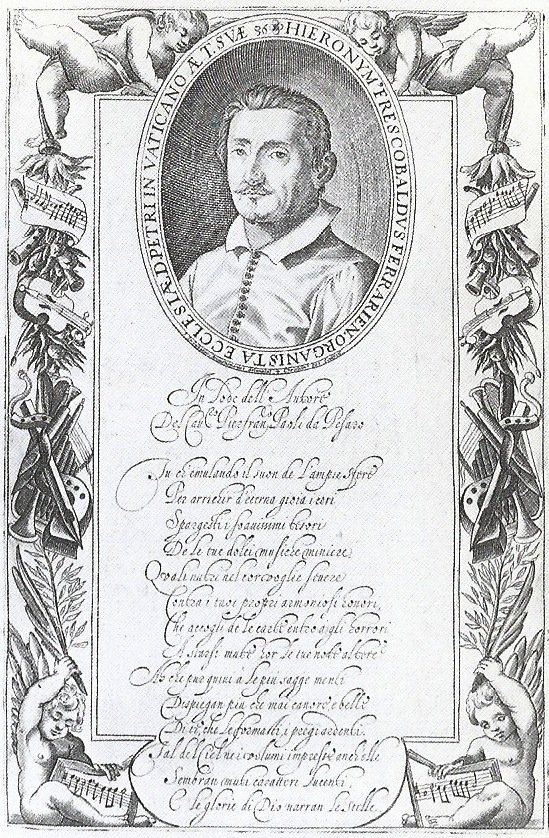 HIERONYM' FRESCOBALDVS FERRARIEN. ORGANISTA ECCLESIÆ D. PETRI IN VATICANO ÆT. SVÆ 36
In Lode dell' Autore
Del Caù.e Pierfran.co Paoli da Pesaro
Tu ch' emulando il suon de l'ampie sfere
Per arricchir d'eterna gioia i cori
Spargesti i soauissimi tesori
De le tue dolci musiche miniere;
Quali nutri nel cor voglie seuere
Contra i tuoi proprj armoniosi honori,
Che accogli de le carte entro a gli horrori
A starsi mute hor le tue note altere
Ah che pur quiui a le più sagge menti
Dispiegan più che mai canore e belle
Di te, che le formasti, i pregi ardenti.
Tal del ciel nei volumi impresse anch' elle
Sembran muti caratteri lucenti
E le glorie di Dio narran le Stelle